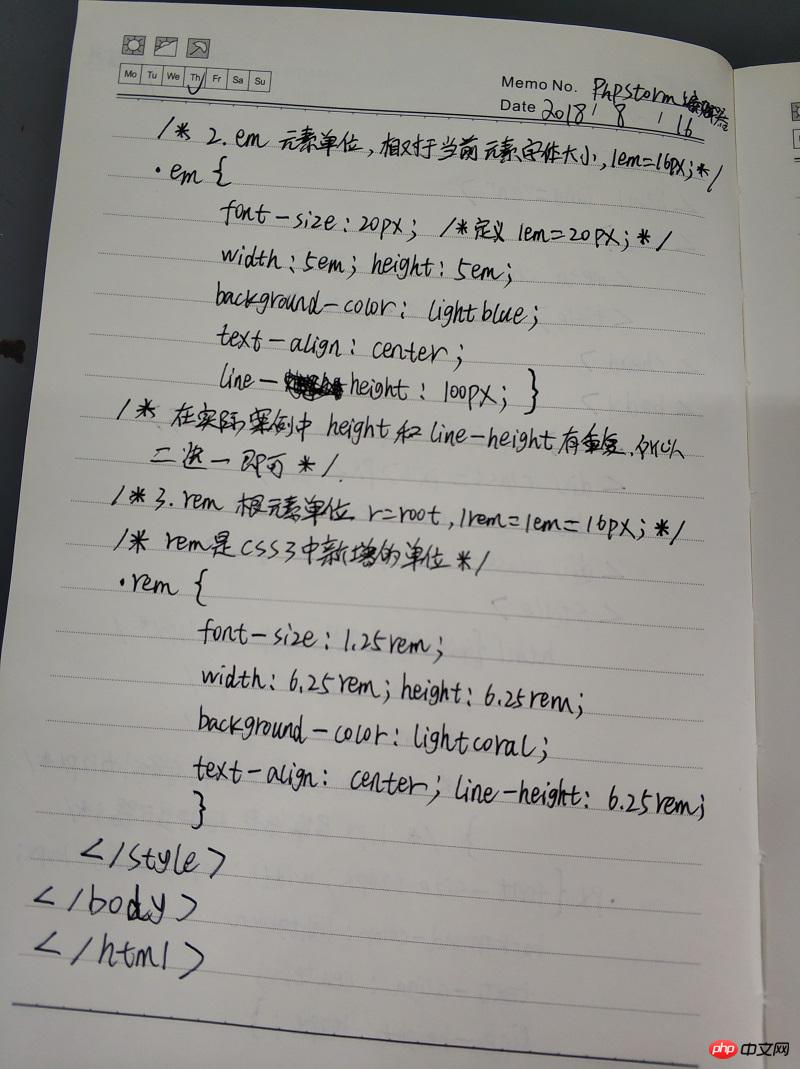 Mo Tu We Th Fr Sa Su
Memo No. PhpStorm编辑器
Date 2018 / 8 / 16
/* 2. em 元素单位, 相对于当前元素字体大小, 1em=16px; */
.em {
font-size: 20px; /*定义 1em=20px; */
width: 5em; height: 5em;
background-color: lightblue;
text-align: center;
line-height: 100px; }
/* 在实际案例中 height 和 line-height 有重复, 所以
二选一即可 */
/* 3. rem 根元素单位. r=root, 1rem=1em=16px; */
/* rem是CSS3中新增的单位 */
.rem {
font-size: 1.25rem;
width: 6.25rem; height: 6.25rem;
background-color: lightcoral;
text-align: center; line-height: 6.25rem;
}
</style>
</body>
</html>
php 中文网